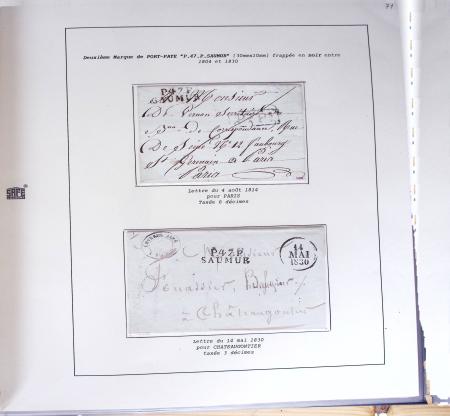 71
Deuxième Marque de PORT-PAYE "P.47.P.SAUMUR" (30mmx10mm) frappée en noir entre
1804 et 1830
P.47.P.
SAUMUR
Monsieur
de Correspondance, Rue
De Seine N° 12 faubourg
St Germain a Paris
Paris
Lettre du 4 août 1814
pour PARIS
Taxée 6 décimes
SAFE
P.47.P.
SAUMUR
14
MAI
1830
Monsieur
à Châteaugontier
Lettre du 14 mai 1830
pour CHATEAUGONTIER
taxée 3 décimes